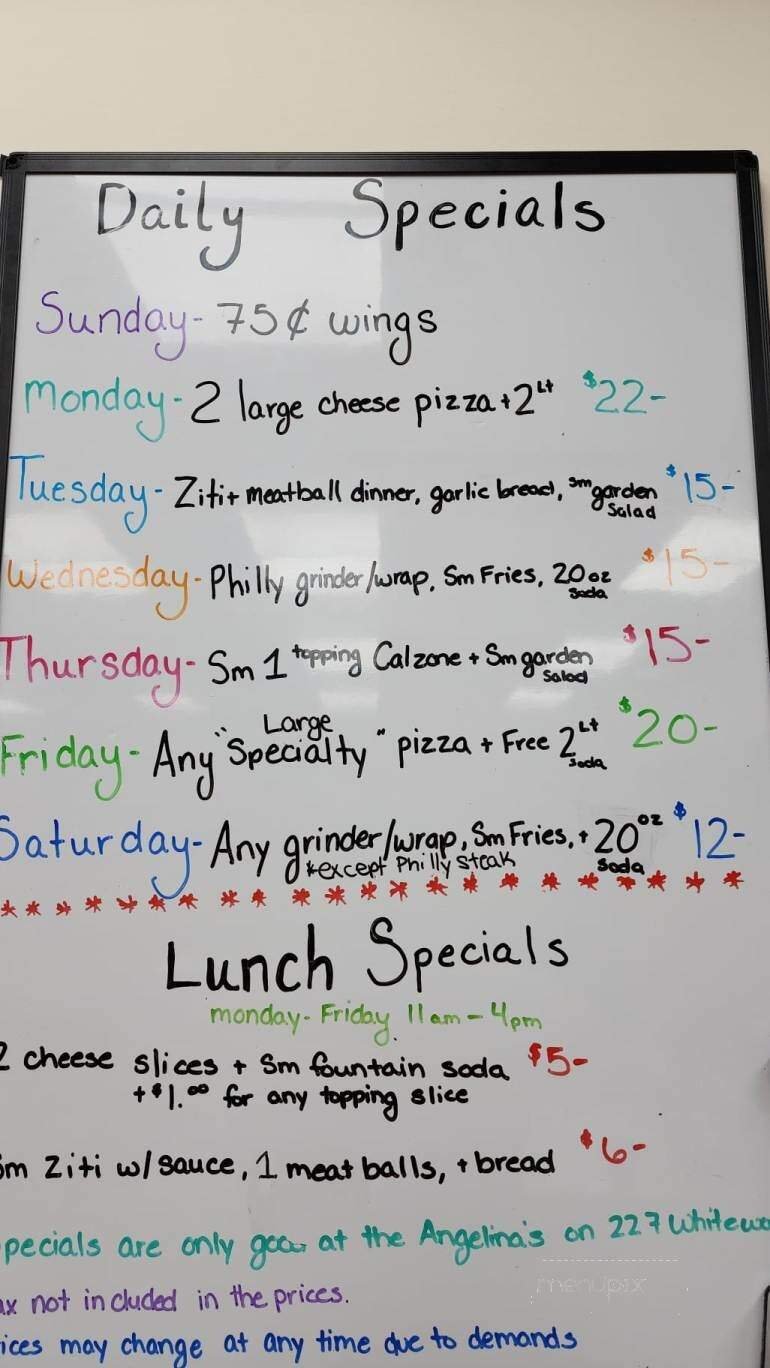 Daily Specials
Sunday- 75¢ wings
Monday- 2 large cheese pizza + 2Lt $22-
Tuesday- Ziti + meatball dinner, garlic bread, sm garden Salad $15-
Wednesday- Philly grinder/wrap, Sm Fries, 20oz Soda $15-
Thursday- Sm 1 topping Calzone + Sm garden Salad $15-
Friday- Any Large "Specialty" pizza + Free 2Lt Soda $20-
Saturday- Any grinder/wrap, Sm Fries, + 20oz Soda $12-
*except Philly Steak
Lunch Specials
monday- Friday 11am - 4pm
2 cheese slices + Sm fountain soda $5-
+$1.00 for any topping slice
Sm Ziti w/sauce, 1 meat balls, + bread $6-
pecials are only at the Angelina's on 227 Whitewo
ax not included in the prices.
ices may change at any time due to demands
menupix